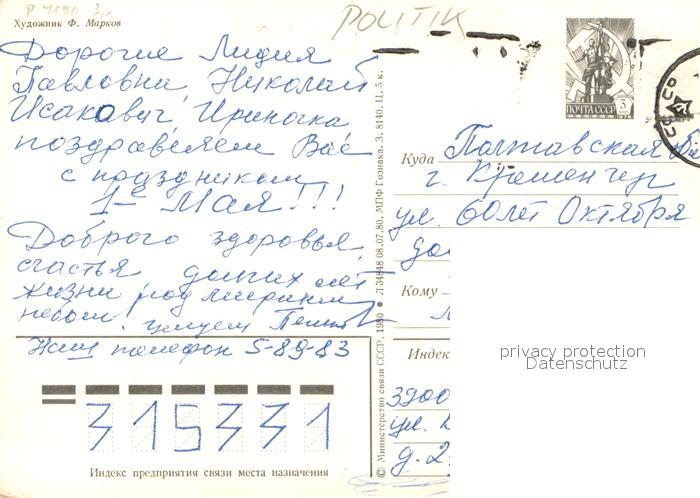 Р 7190
Художник Ф. Марков
POLITIK
Дорогие Лидия
Павловна Николай
Исакович, Ириночка
поздравляем Вас
с праздником
1-е Мая!!!
Доброго здоровья,
счастья долгих лет
жизни под мирным
небом! целуем
Наш телефон 5-89-83
315331
Индекс предприятия связи места назначения
© Министерство связи СССР, 1980 ● Л 34848 08.07.80. МПФ Гознака. З. 8140. Ц. 5 к.
ПОЧТА СССР 3
Куда Полтавская
г. Кременчуг
ул. 60 лет Октября
Кому
Индек
3900
ул.
д. 2
privacy protection
Datenschutz